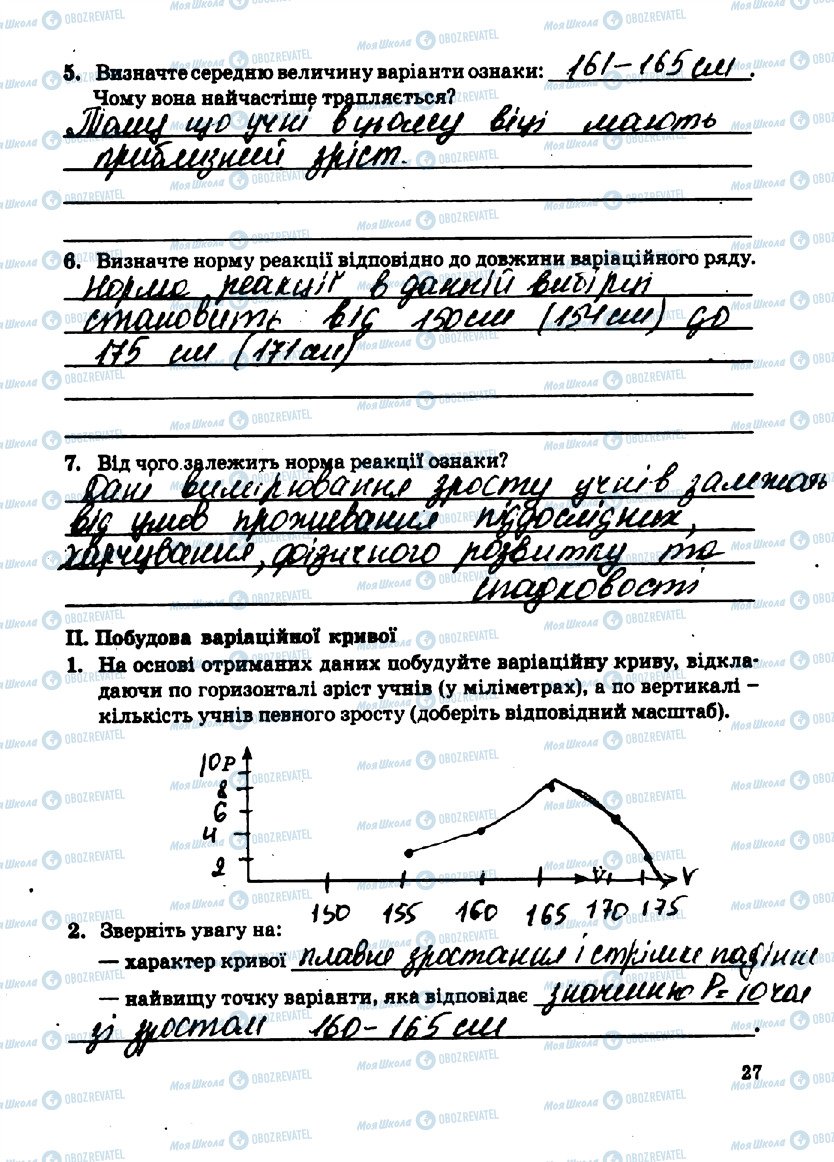 5. Визначте середню величину варіанти ознаки: 161-165 см.
Чому вона найчастіше трапляється?
Тому що учні в цьому віці мають
приблизний зріст.
6. Визначте норму реакції відповідно до довжини варіаційного ряду.
Норма реакції в данній вибірці
становить від 150 см (151 см) до
175 см (171 см)
7. Від чого залежить норма реакції ознаки?
Дані вимірювання зросту учнів залежать
від умов проживання піддослідних,
харчування, фізичного розвитку та
спадковості
II. Побудова варіаційної кривої
1. На основі отриманих даних побудуйте варіаційну криву, відкла-
даючи по горизонталі зріст учнів (у міліметрах), а по вертикалі –
кількість учнів певного зросту (доберіть відповідний масштаб).
10 P
8
6
4
2
V
150 155 160 165 170 175
2. Зверніть увагу на:
— характер кривої плавне зростання і стрімке падіння
— найвищу точку варіанти, яка відповідає значенню P = 10 чол
зі зростом 160-165 см.
27
МояШкола OBOZREVATEL